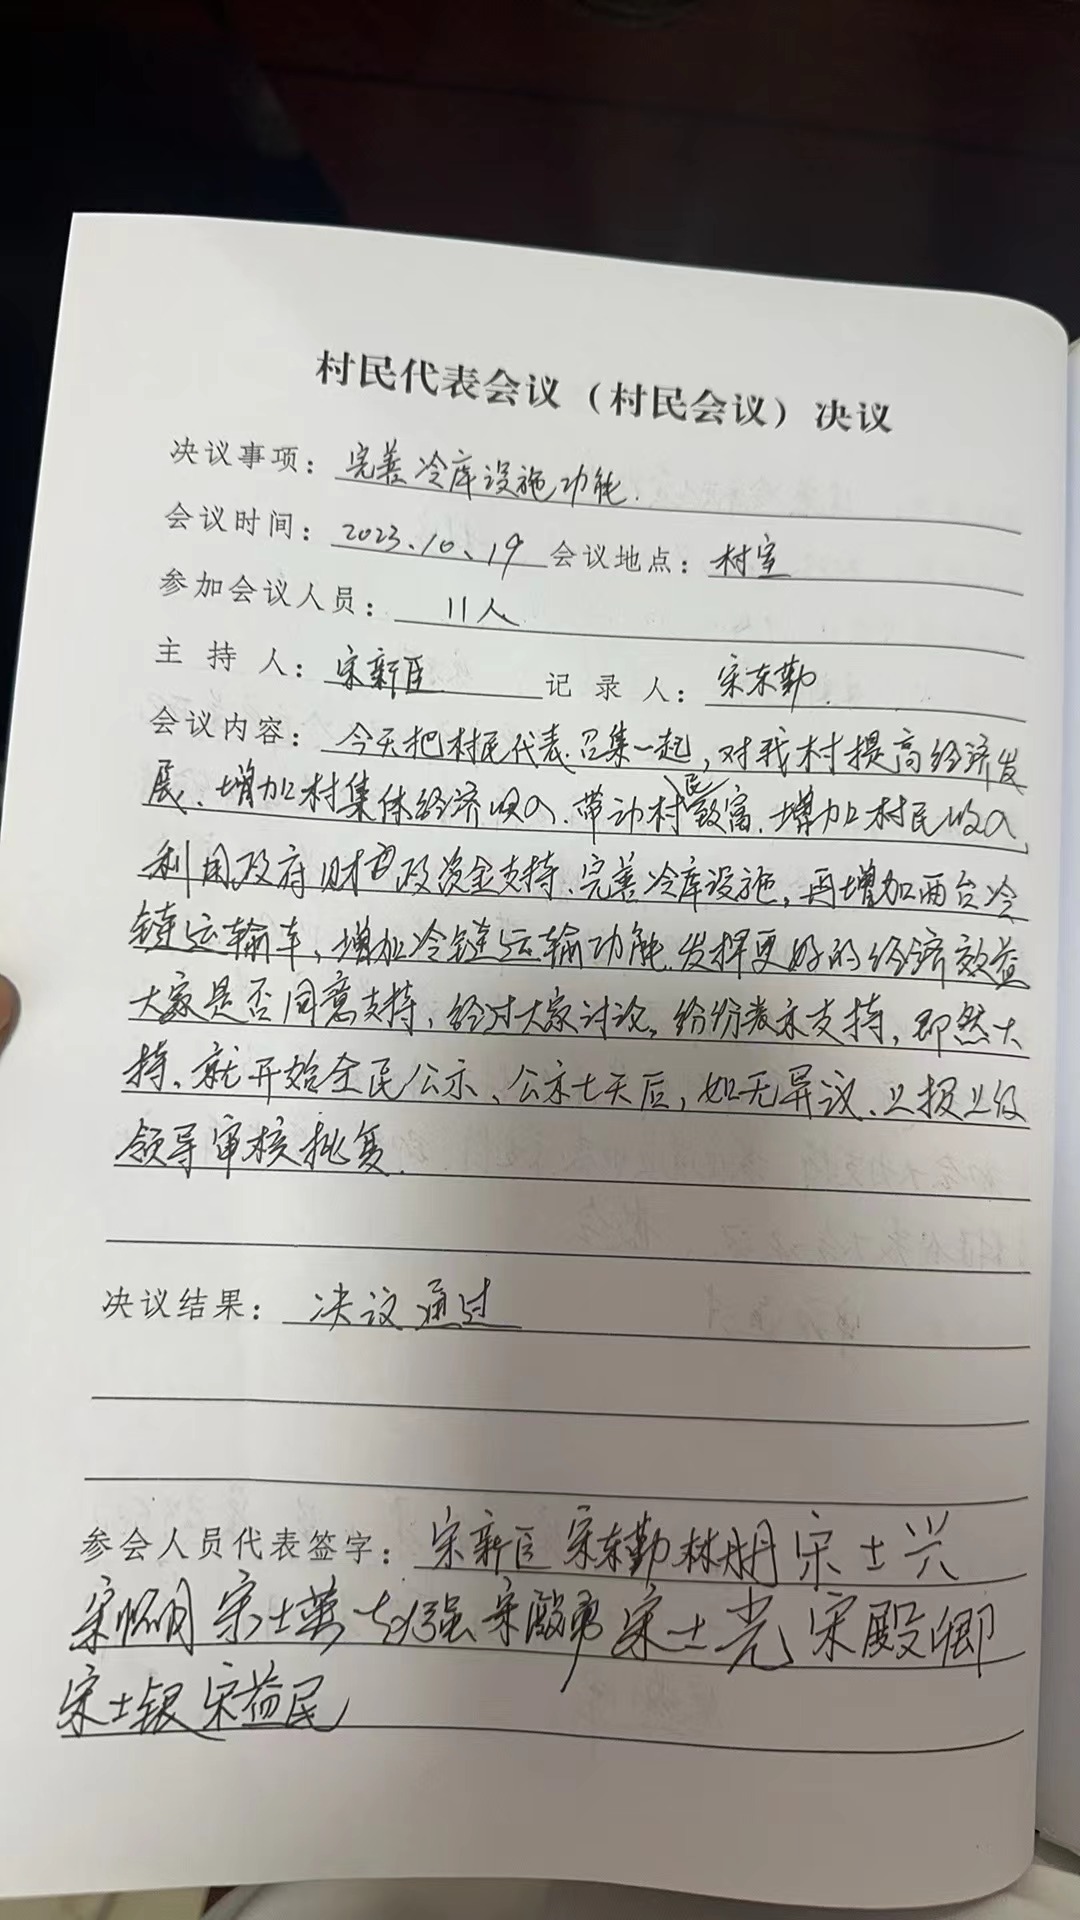 村民代表会议（村民会议）决议
决议事项：完善冷库设施功能.
会议时间：2023.10.19 会议地点：村室
参加会议人员：11人
主持人：宋新臣 记录人：宋东勤.
会议内容：今天把村民代表召集一起，对我村提高经济发
展、增加村集体经济收入、带动村民致富、增加村民收入
利用政府财政资金支持、完善冷库设施，再增加两台冷
链运输车、增加冷链运输功能.发挥更好的经济效益
大家是否同意支持，经过大家讨论，纷纷表示支持，即然大
持、就开始全民公示、公示七天后，如无异议、上报上级
领导审核批复.
决议结果：决议通过
参会人员代表签字：宋新臣 宋东勤 林朋 宋士兴
宋士英 宋殿勇 宋士光 宋殿卿
宋士银 宋益民